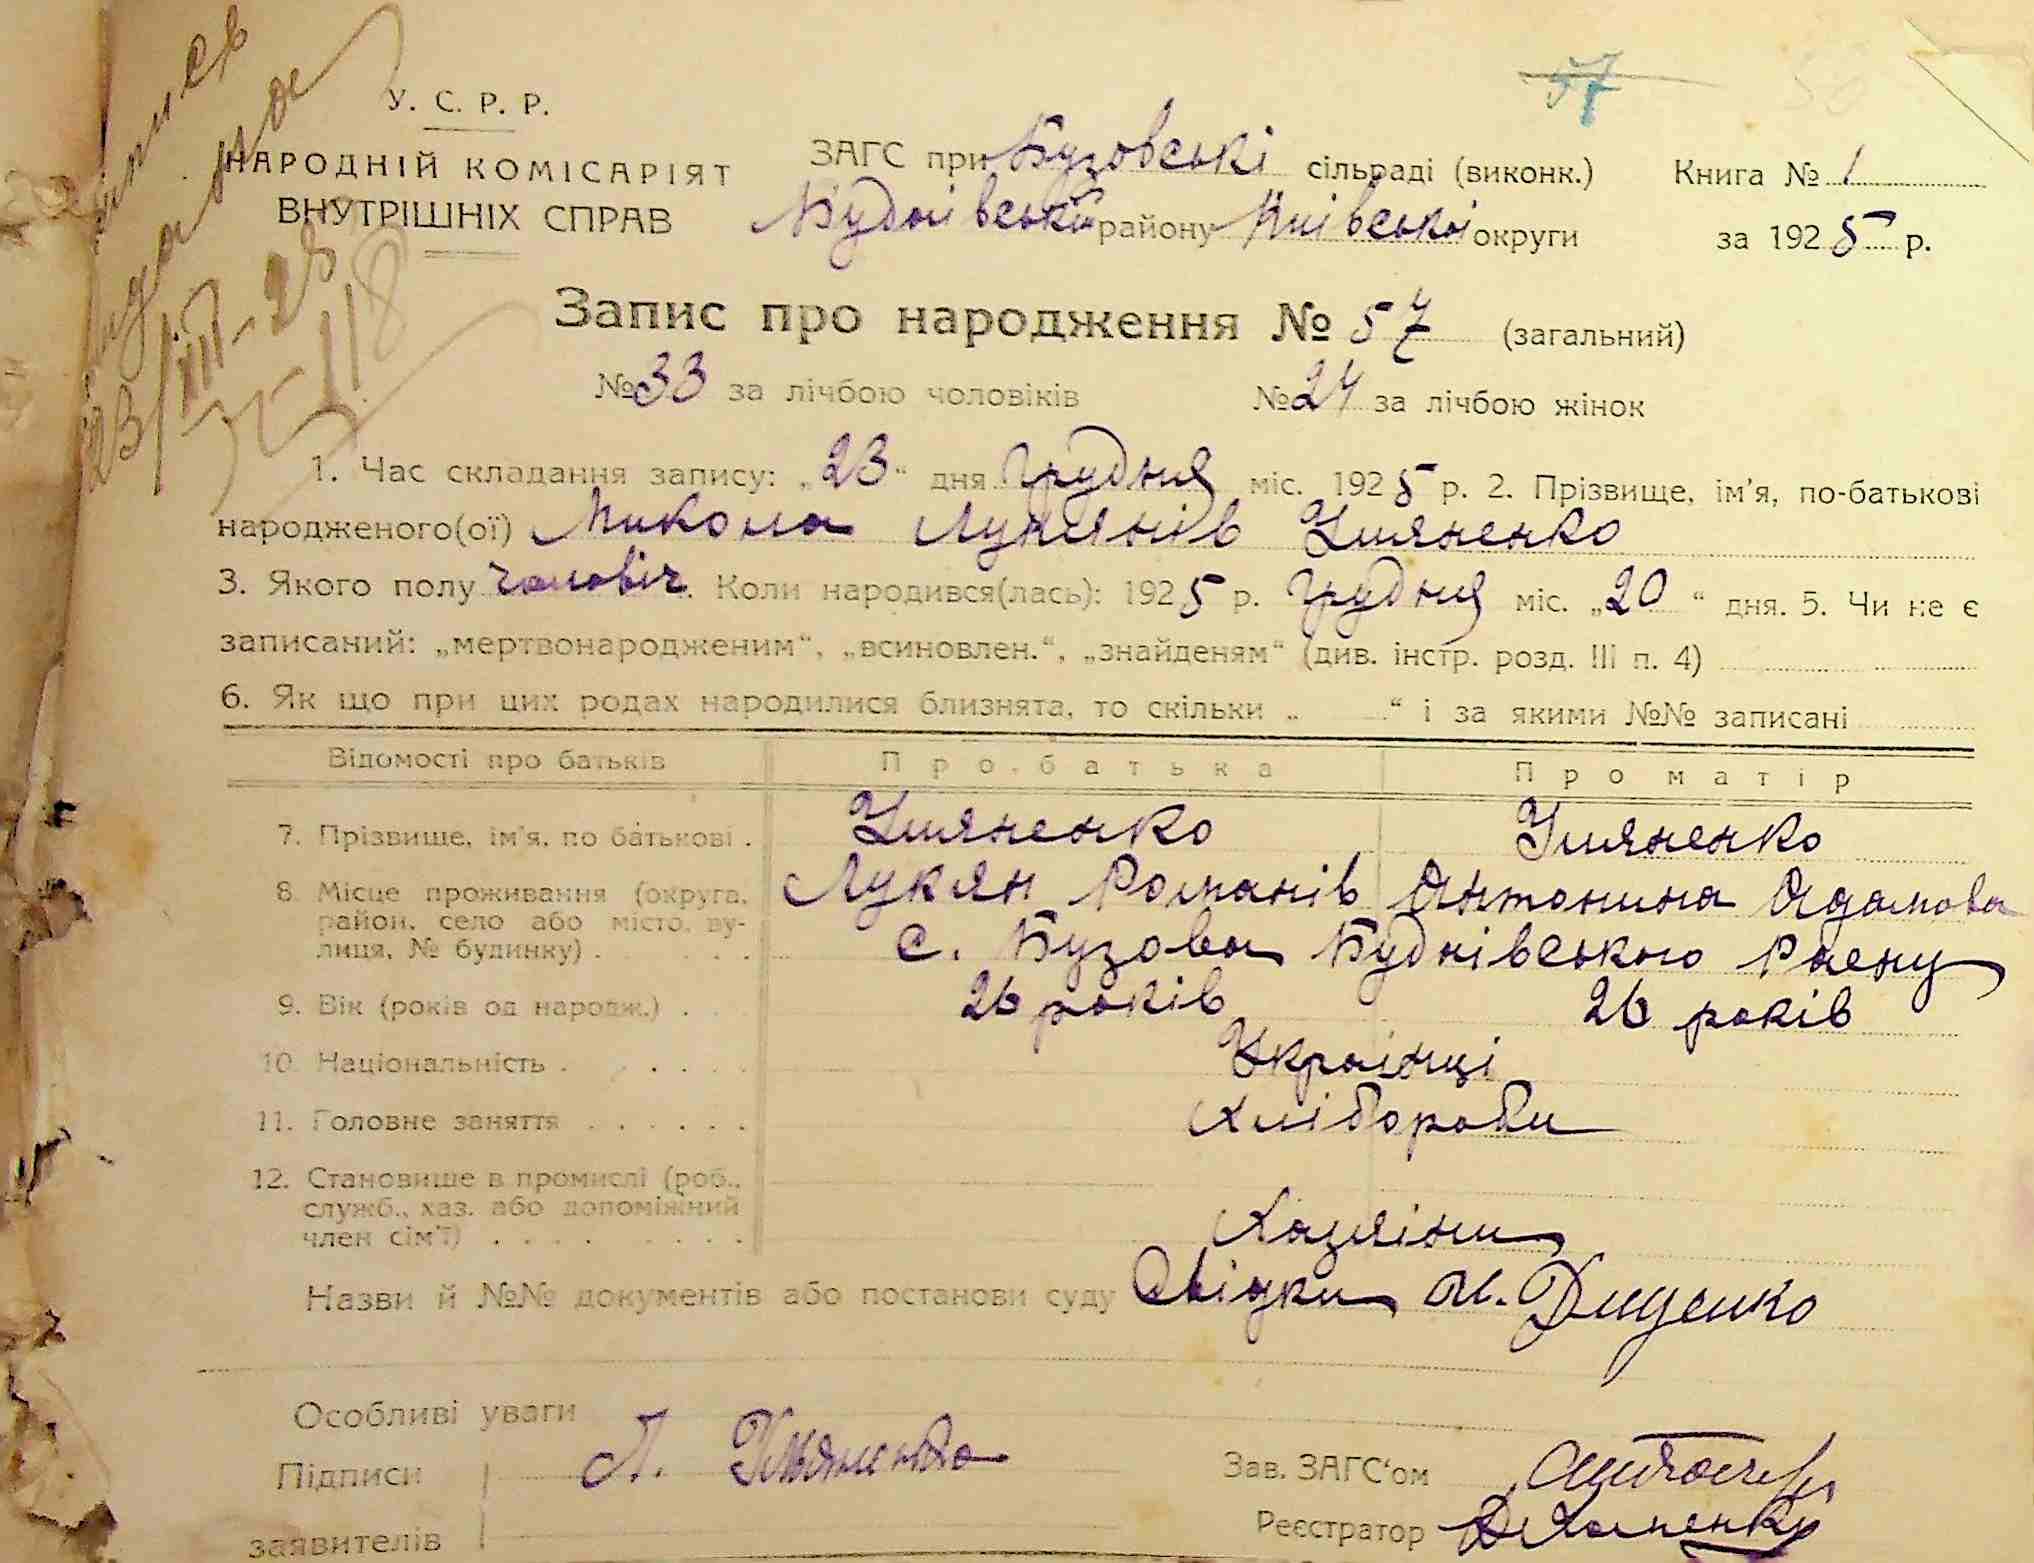 57
У. С. Р. Р.
НАРОДНІЙ КОМІСАРІЯТ
ВНУТРІШНІХ СПРАВ
ЗАГС при Бузовські сільраді (виконк.)
Будаївські району Київської округи
Книга № 1
за 1925 р.
23/III-28
Запис про народження № 57 (загальний)
№ 33 за лічбою чоловіків № 24 за лічбою жінок
1. Час складання запису: „23“ дня Грудня міс. 1925 р. 2. Прізвище, ім'я, по-батькові
народженого(ої) Микола Лукянів Уляненко
3. Якого полу чоловіч. Коли народився(лась): 1925 р. Грудня міс. „20“ дня. 5. Чи не є
записаний: „мертвонародженим“, „всиновлен.“, „знайденям“ (див. інстр. розд. III п. 4)
6. Як що при цих родах народилися близнята, то скільки „ “ і за якими №№ записані
Відомості про батьків Про батька Про матір
7. Прізвище, ім'я, по батькові . Уляненко Уляненко
Лукян Романів Антонина Адамова
8. Місце проживання (округа,
район, село або місто, ву-
лиця, № будинку) . с. Бузова Будаівського Раену
9. Вік (років од народж.) . 26 років 26 років
10. Національність . Украінці
11. Головне заняття Хлібороби
12. Становище в промислі (роб.,
служб., хаз. або допоміжний
член сім'ї) Хазяіни
Назви й №№ документів або постанови суду Свідки Діденко
Особливі уваги
Підписи Л. Ульяненко
заявителів
Зав. ЗАГС'ом
Реєстратор